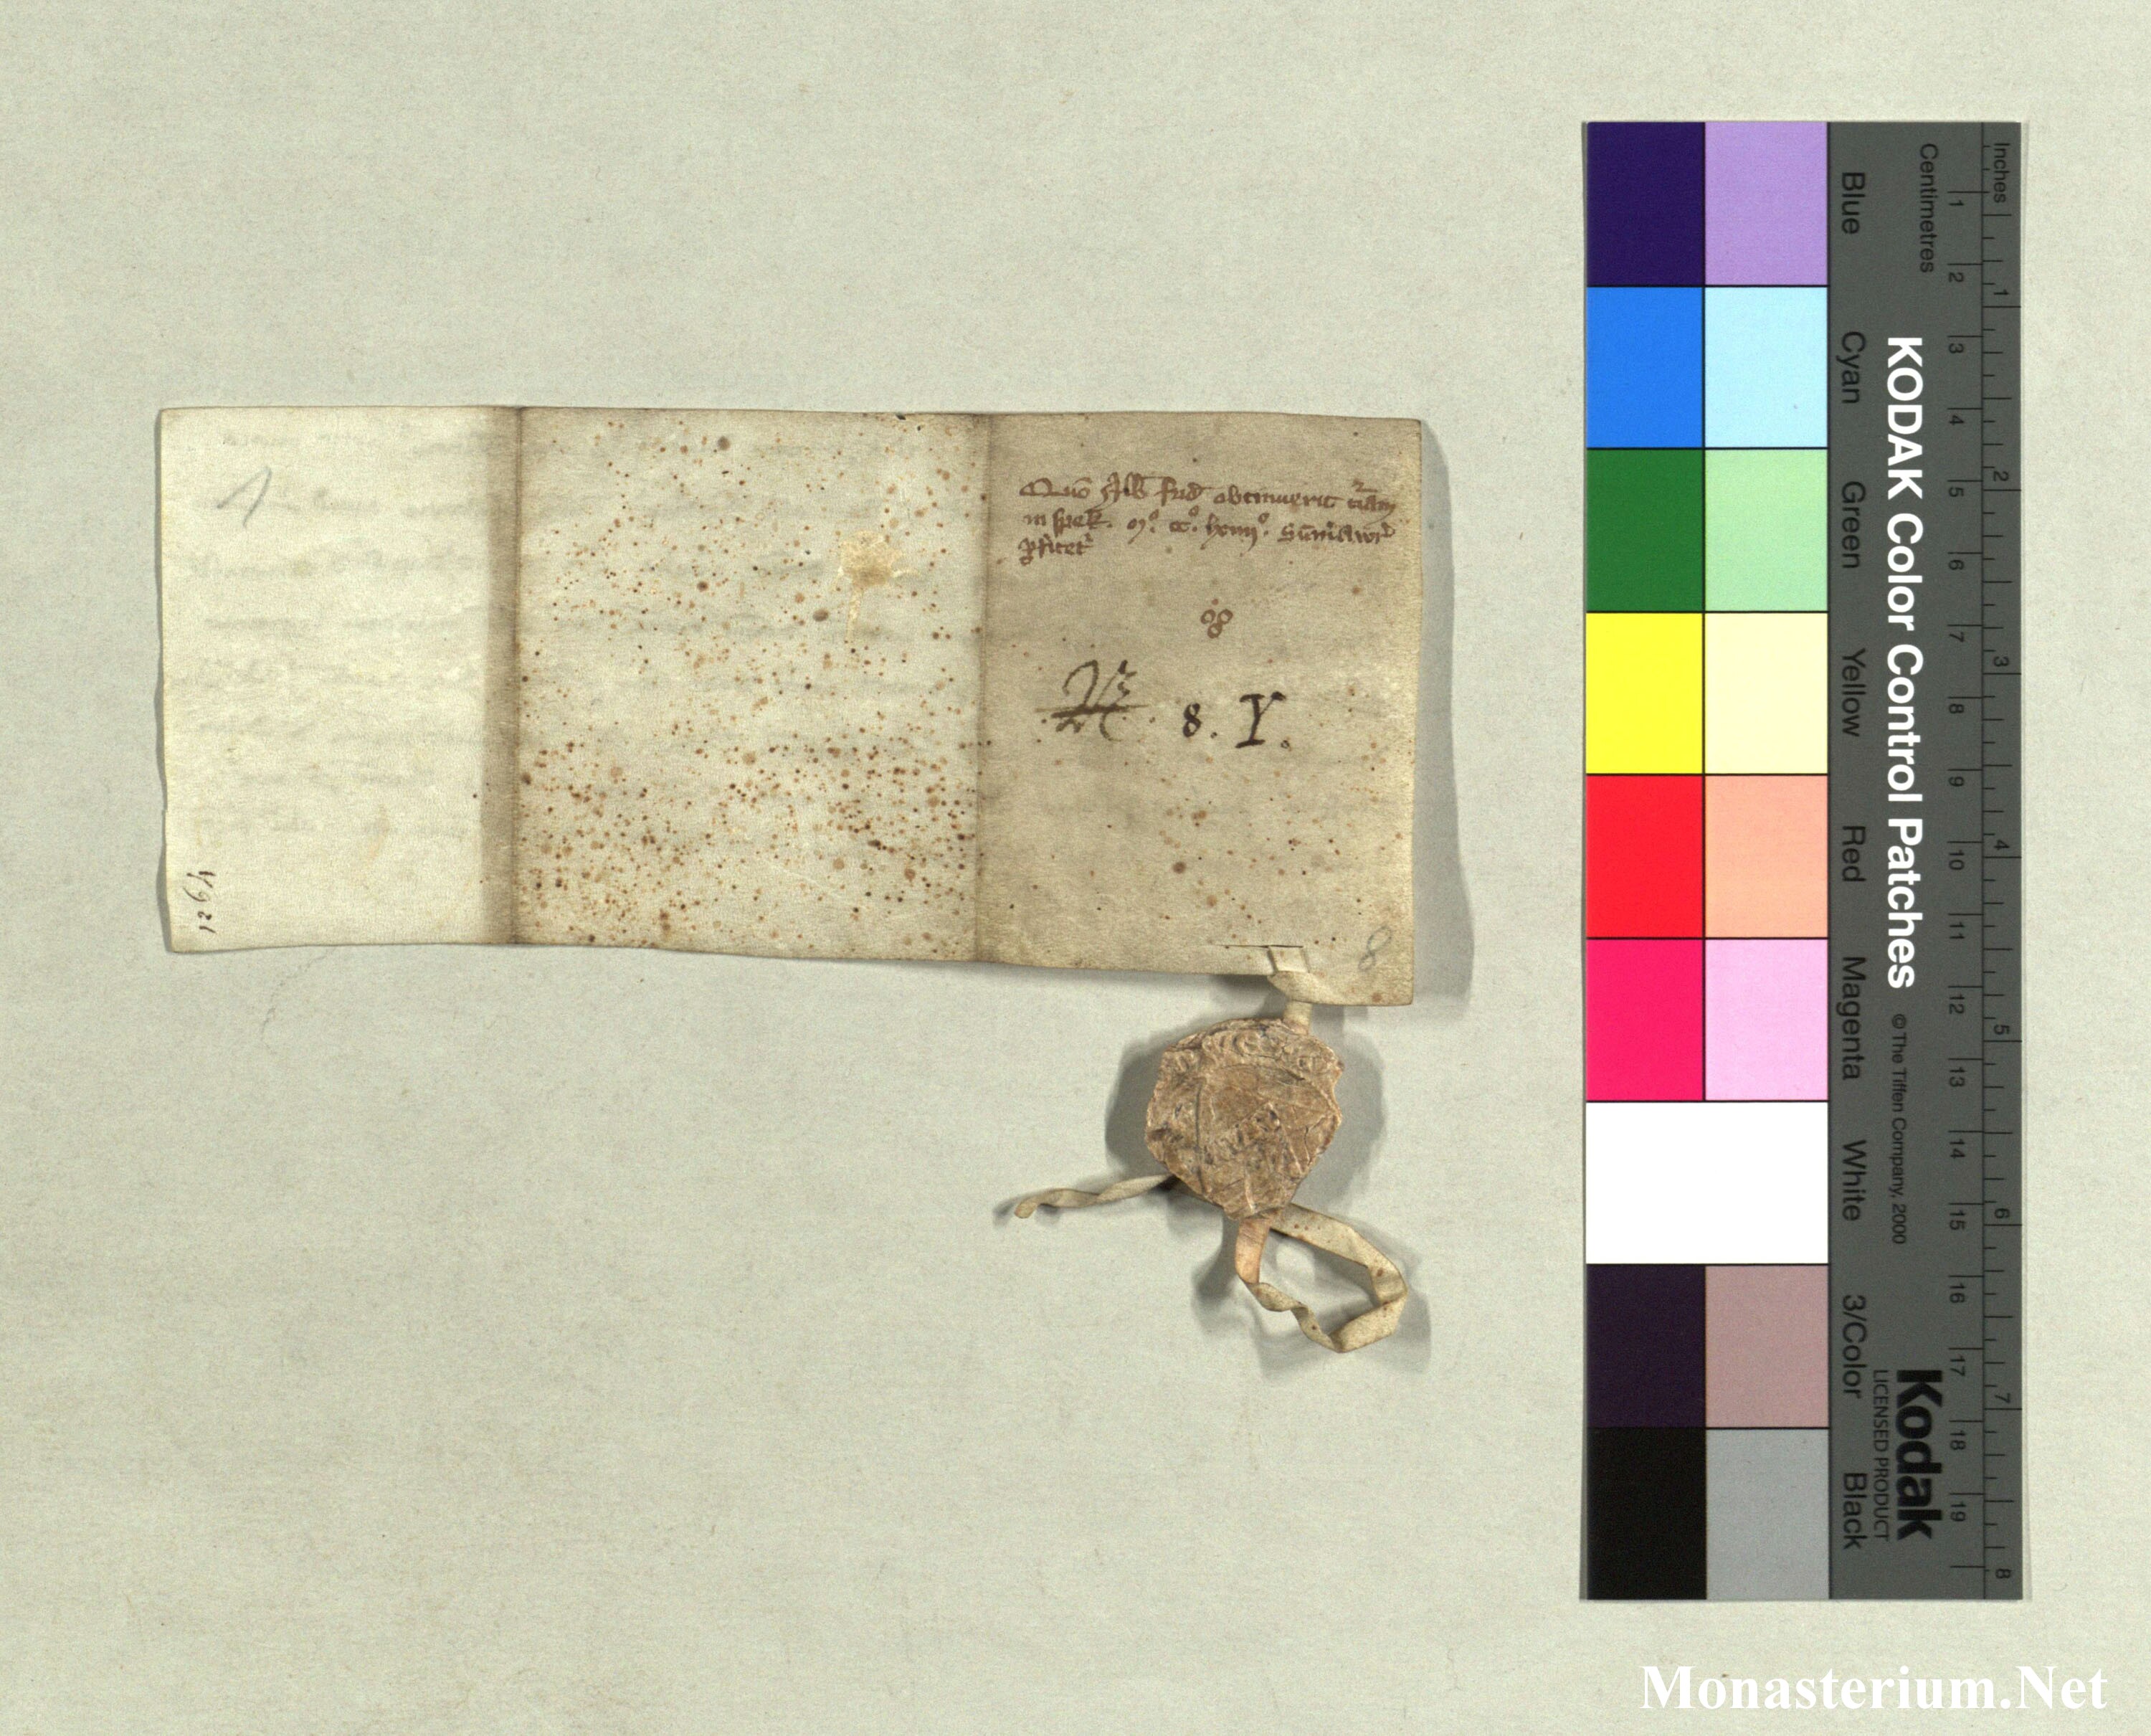 1
Quō Alb frid obtinuerit
in spek. mº. ccº. lxiiijº.
8. Y.
8
1264
Inches
Centimetres
1 2 3 4 5 6 7 8 9 10 11 12 13 14 15 16 17 18 19
1 2 3 4 5 6 7 8
KODAK Color Control Patches
© The Tiffen Company, 2000
Kodak
LICENSED PRODUCT
Blue
Cyan
Green
Yellow
Red
Magenta
White
3/Color
Black
Monasterium.Net